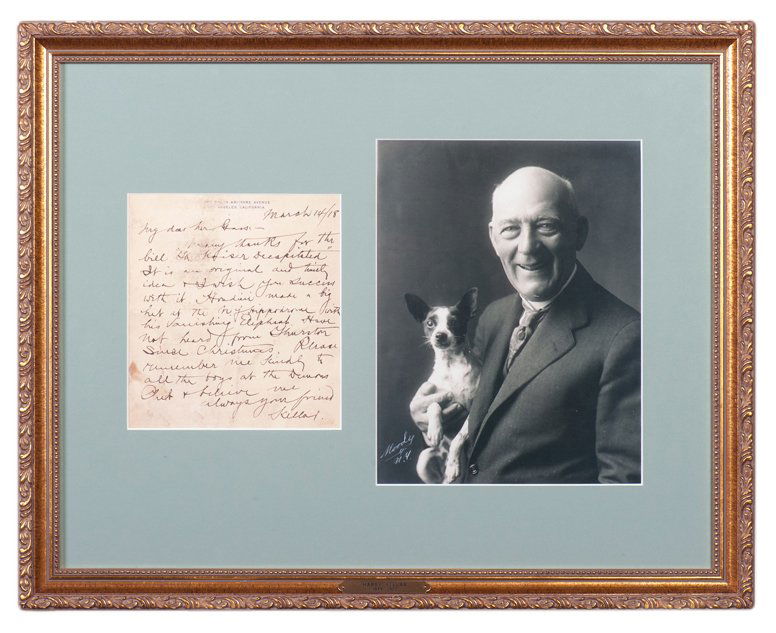 ANGELES, CALIFORNIA
March 14/18
My dear Mr
Many thanks for the
bill "The Kaiser Decapitated"
It is an original and timely
idea & I wish you success
with it. Houdini made a big
hit at the N.Y. Hippodrome with
his vanishing Elephant. Have
not heard from Thurston
Since Christmas. Please
remember me kindly to
all the boys at the Demons
Club & believe me
always your friend
Kellar.
Moody
N.Y.
HARRY KELLAR